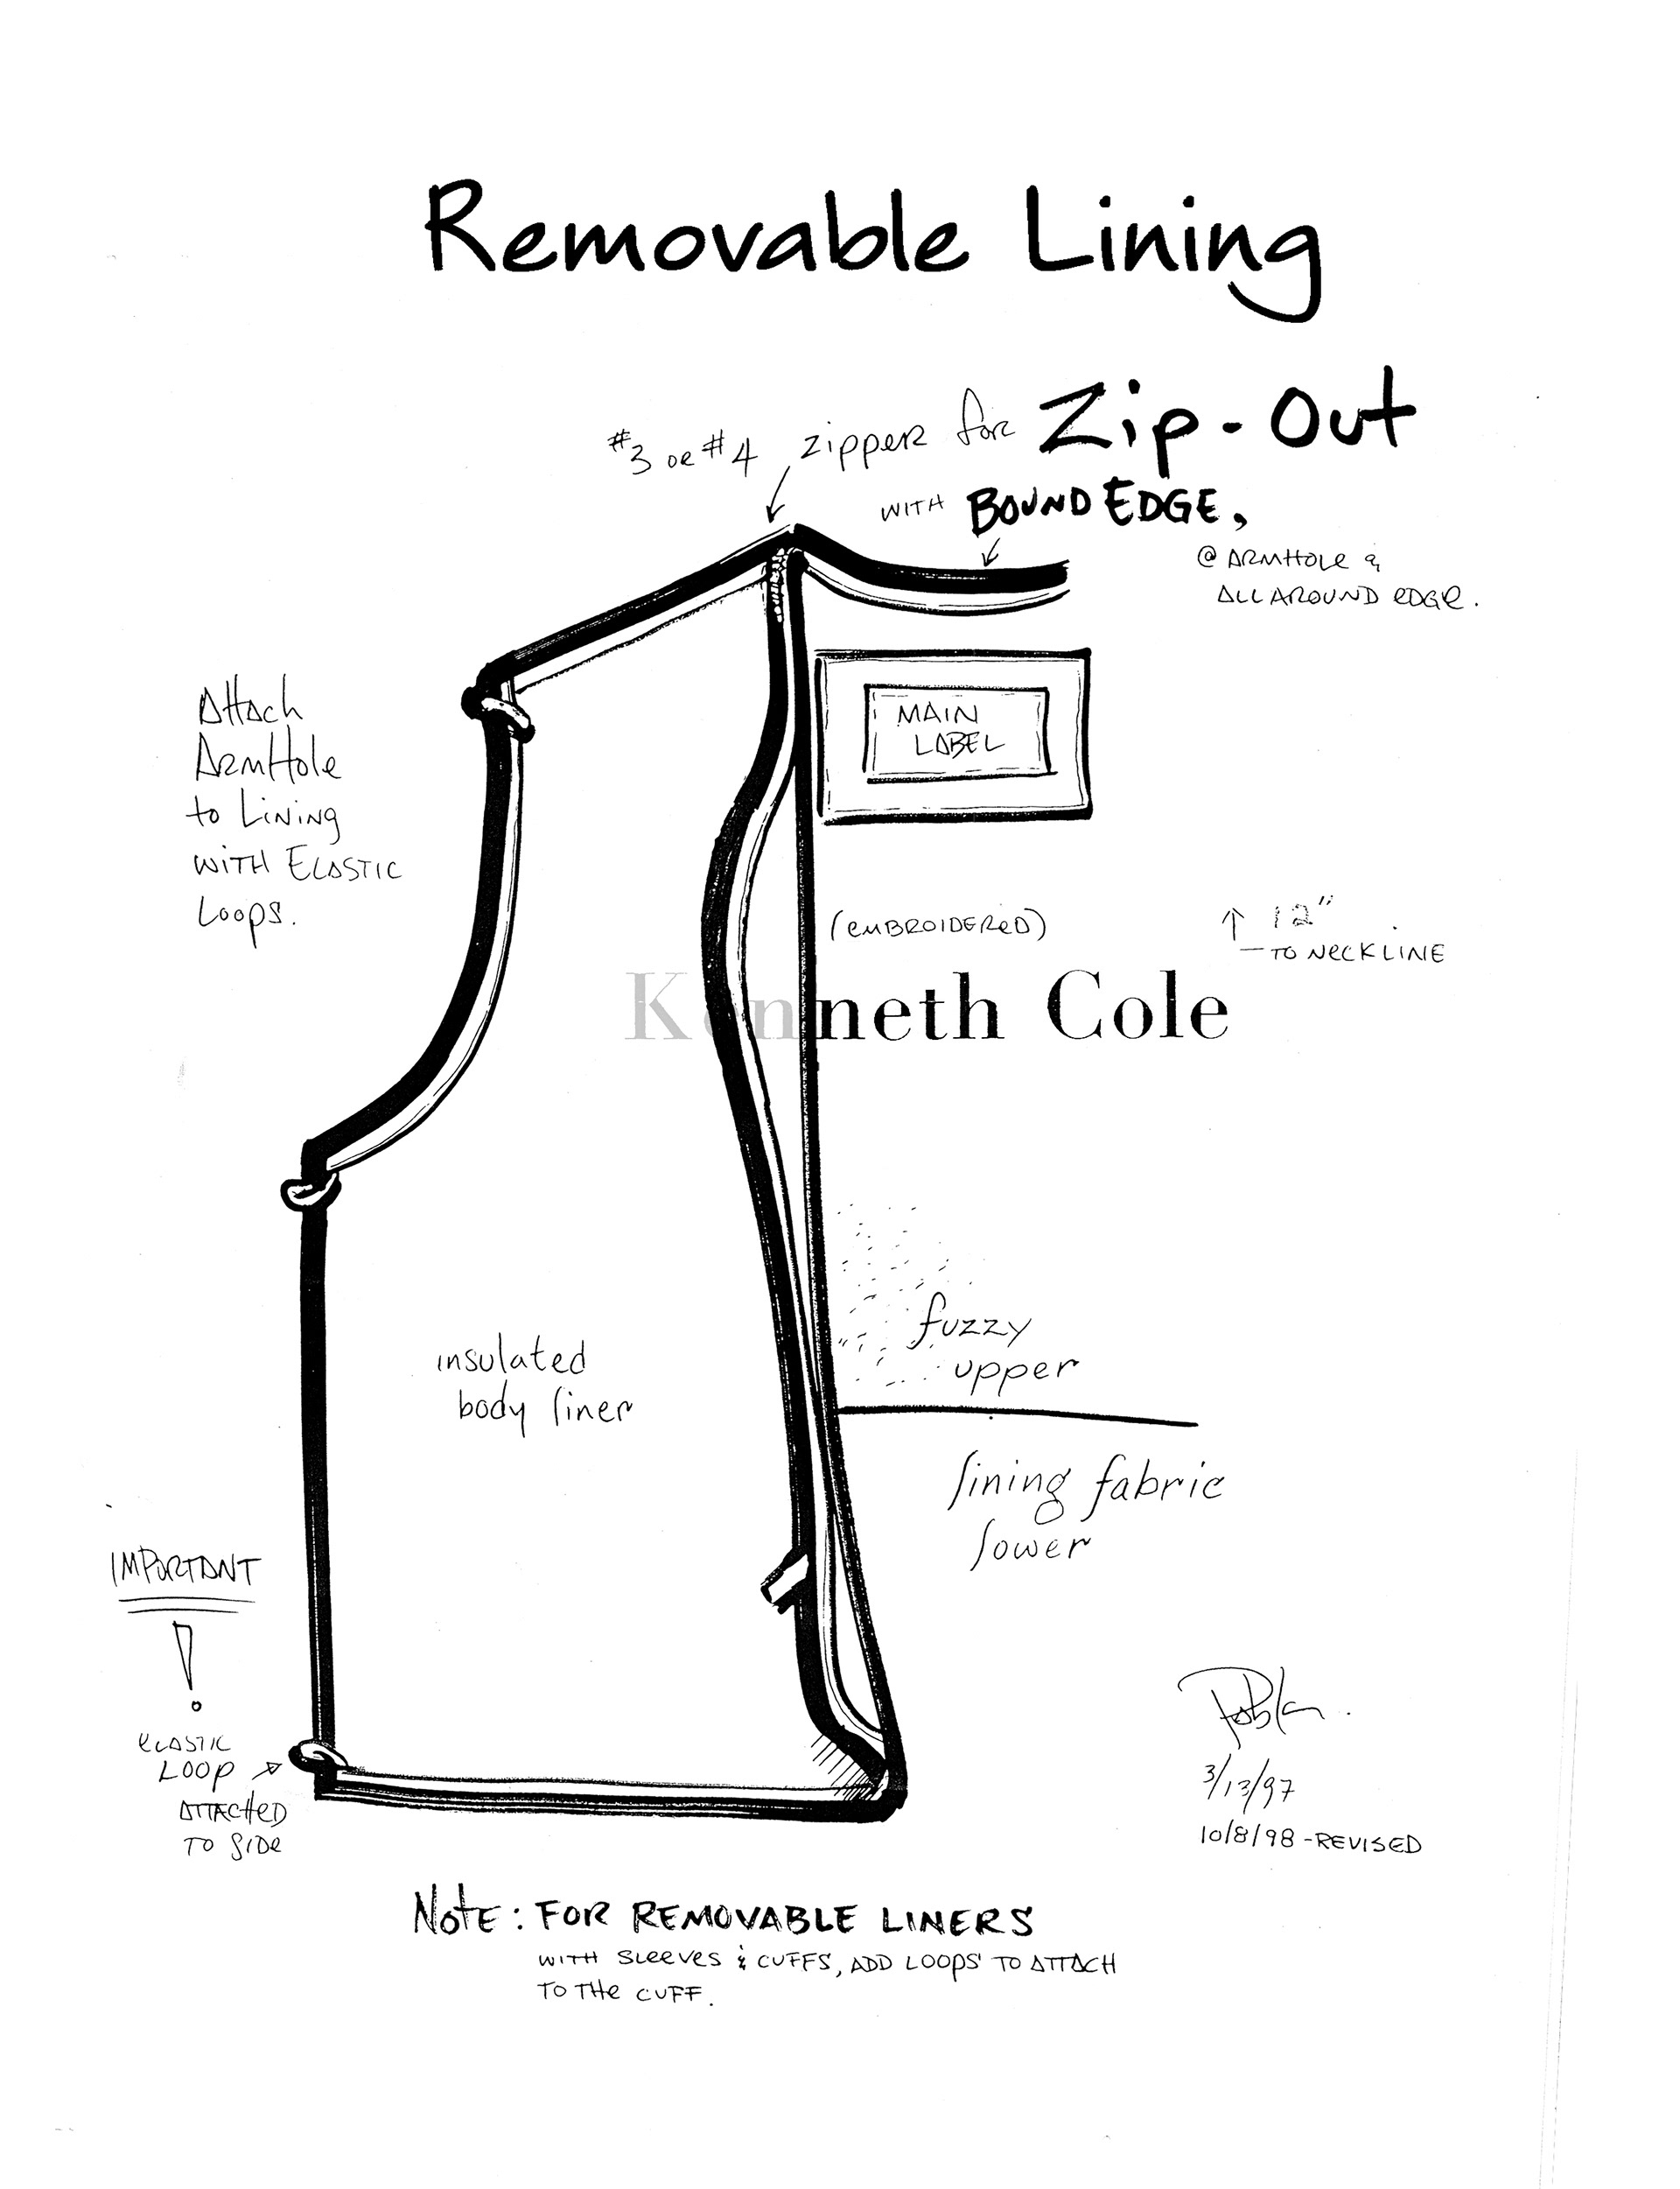 Removable Lining
#3 or #4 zipper for Zip-Out
with BOUND EDGE,
@ ARMHOLE &
ALL AROUND EDGE.
Attach
ArmHole
to Lining
with Elastic
Loops.
MAIN
LABEL
(embroidered)
↑ 12"
— TO NECKLINE
Kenneth Cole
fuzzy
upper
insulated
body liner
lining fabric
lower
IMPORTANT
!
elastic
LOOP
ATTACHED
TO SIDe
3/13/97
10/8/98 - REVISED
Note: FOR REMOVABLE LINERS
WITH SLeeVeS & CUFFS, ADD LOOPS TO ATTACH
TO THe CUFF.